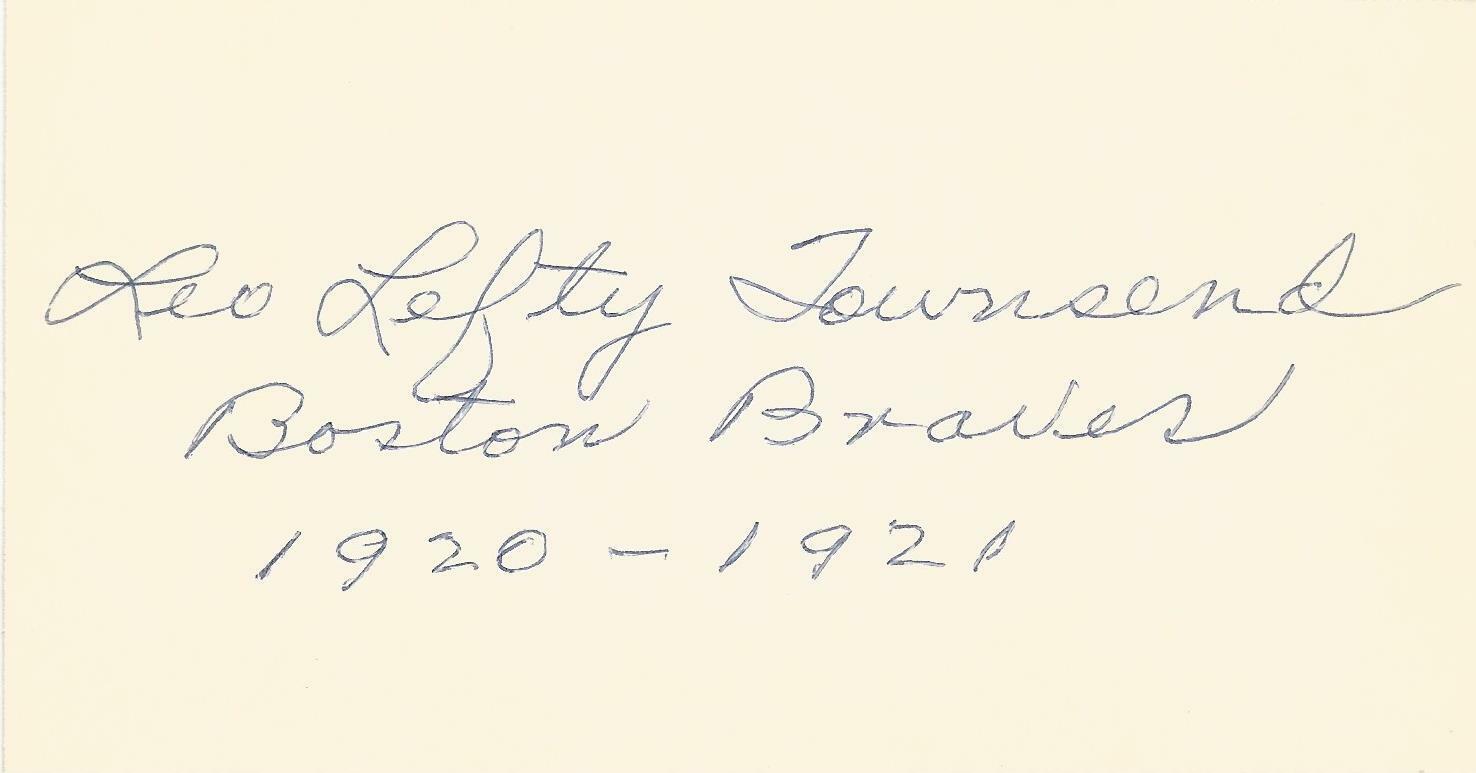 Leo Lefty Townsend
Boston Braves
1920 - 1921